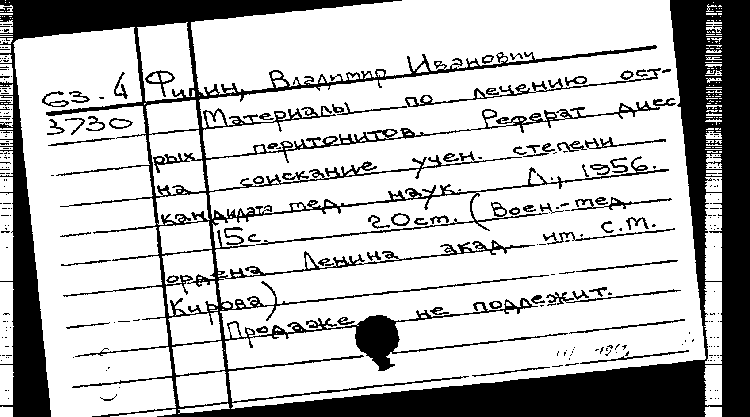 63.4 Филин, Владимир Иванович
3730 Материалы по лечению ост-
рых перитонитов. Реферат дисс.
на соискание учен. степени
кандидата мед. наук. Л., 1956.
15с. 20см. (Воен.-мед.
ордена Ленина акад. им. С.М.
Кирова).
Продаже не подлежит.